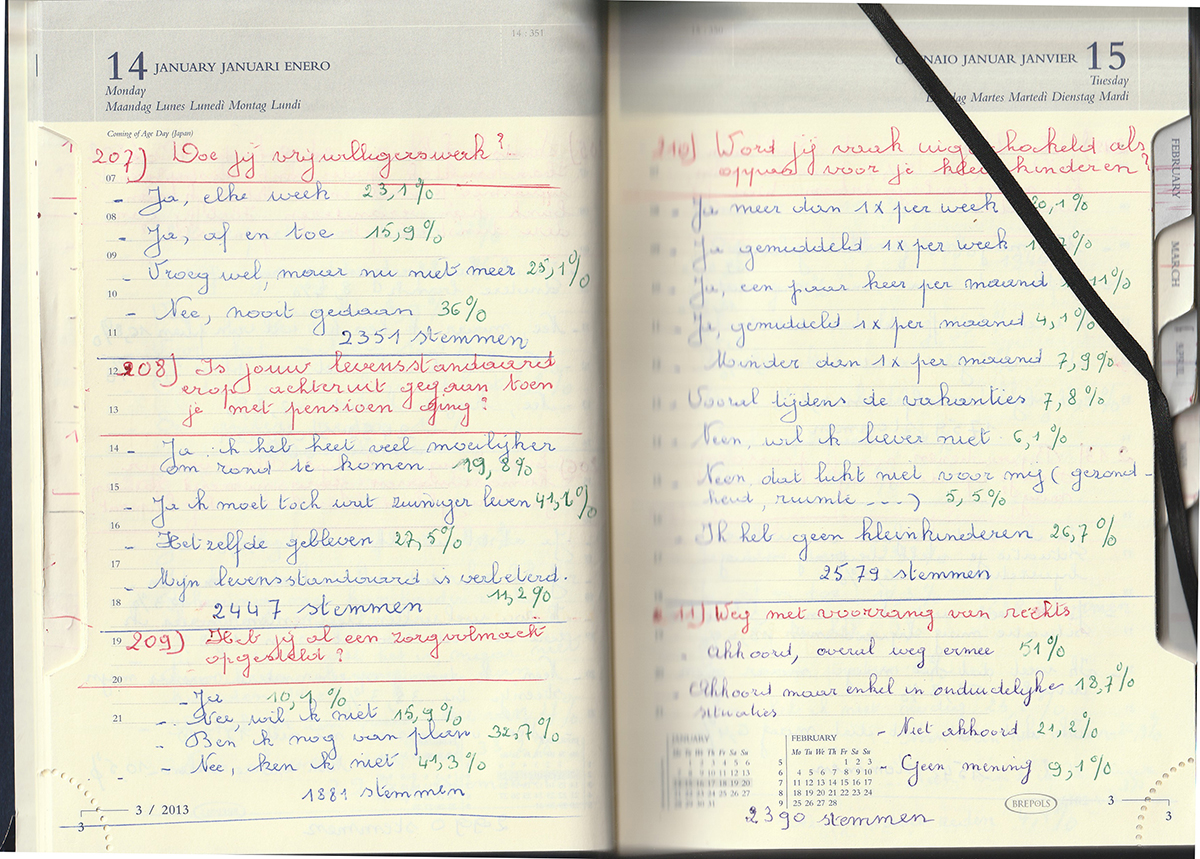 14 : 351
14 JANUARY JANUARI ENERO
Monday
Maandag Lunes Lunedì Montag Lundi
Coming of Age Day (Japan)
207) Doe jij vrijwilligerswerk?
07
- Ja, elke week 23,1%
08
- Ja, af en toe 15,9%
09
- Vroeg wel, maar nu niet meer 25,1%
10
- Nee, nooit gedaan 36%
11
2351 stemmen
12
208) Is jouw levensstandaard
erop achteruit gegaan toen
13
je met pensioen ging?
14
- Ja ik heb heet veel moeilijker
om rond te komen 19,8%
15
- Ja ik moet toch wat zuiniger leven 41,2%
16
- Hetzelfde gebleven 27,5%
17
- Mijn levensstandaard is verbeterd.
11,2%
18
2447 stemmen
19
209) Heb jij al een zorgvolmacht
opgesteld?
20
- Ja 10,1%
21
- Nee, wil ik niet 15,9%
- Ben ik nog van plan 32,7%
- Nee, ken ik niet 41,3%
1881 stemmen
3 / 2013
3
JANUAR JANVIER 15
Tuesday
Martes Martedì Dienstag Mardi
210) Word jij vaak als
oppas voor je kleinkinderen?
- Ja meer dan 1x per week 20,1%
- Ja gemiddeld 1x per week
- Ja, een paar keer per maand 11%
- Ja, gemiddeld 1x per maand 4,1%
- Minder dan 1x per maand 7,9%
- Vooral tijdens de vakanties 7,8%
- Neen, wil ik liever niet 6,1%
- Neen, dat lukt niet voor mij (gezond-
heid, ruimte ---) 5,5%
- Ik heb geen kleinkinderen 26,7%
2579 stemmen
11) Weg met voorrang van rechts
- akkoord, overal weg ermee 51%
- akkoord maar enkel in onduidelijke 18,7%
situaties
- Niet akkoord 21,2%
- Geen mening 9,1%
2390 stemmen
JANUARY
Mo Tu We Th Fr Sa Su
FEBRUARY
Mo Tu We Th Fr Sa Su
5 1 2 3
6 4 5 6 7 8 9 10
7 11 12 13 14 15 16 17
8 18 19 20 21 22 23 24
9 25 26 27 28
BREPOLS
3
3
FEBRUARY
MARCH
APRIL